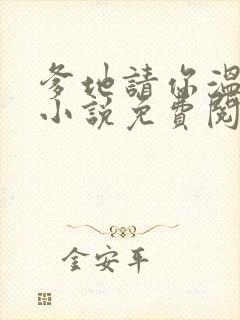 爹地請你溫
小說免費閱
金安平